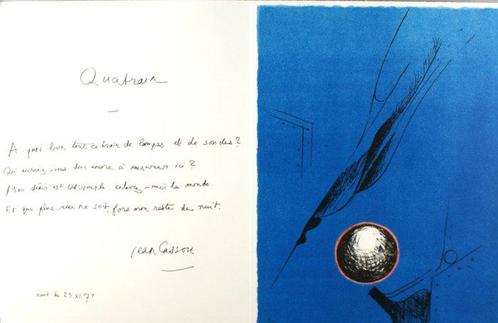 Quatrain
A quoi bon tout ce bois de lampes et de sondes ?
Qu'auriez-vous donc encore à mesurer ici ?
Mon désir est accompli enlevez-moi le monde
Et que plus rien ne soit, fors mon reste de nuit.
Jean Cassou
23.XI.71